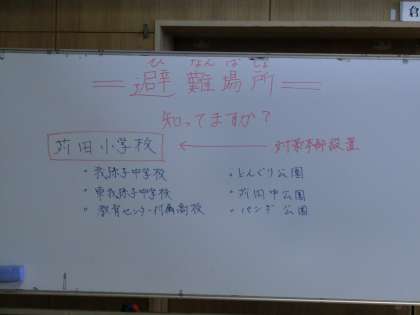 ひ なん ば しょ
避難場所
知ってますか?
苅田小学校 ← 対策本部設置
・我孫子中学校 ・どんぐり公園
・東我孫子中学校 ・苅田中公園
・教育センター附属高校 ・パンダ公園